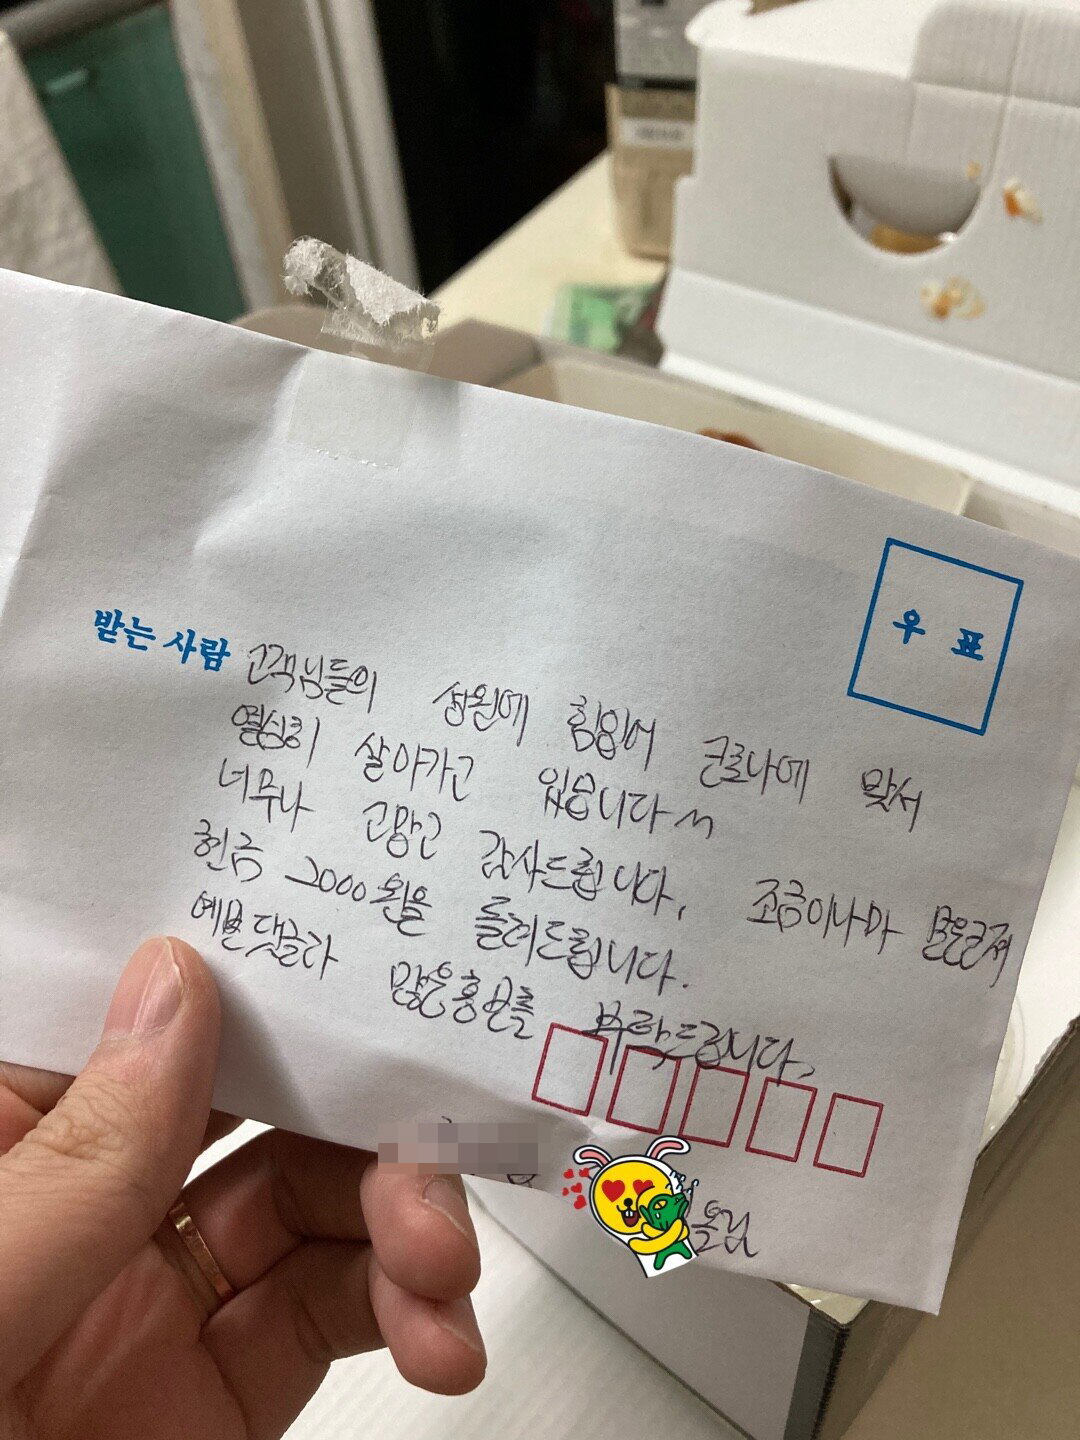 우 표
받는 사람
고객님들의 성원에 힘입어 코로나에 맞서
열심히 살아가고 있습니다^^
너무나 고맙고 감사드립니다, 조금이나마
현금 2000원을 돌려드립니다.
예쁜댓글과 많은홍보를 부탁드립니다,
올림